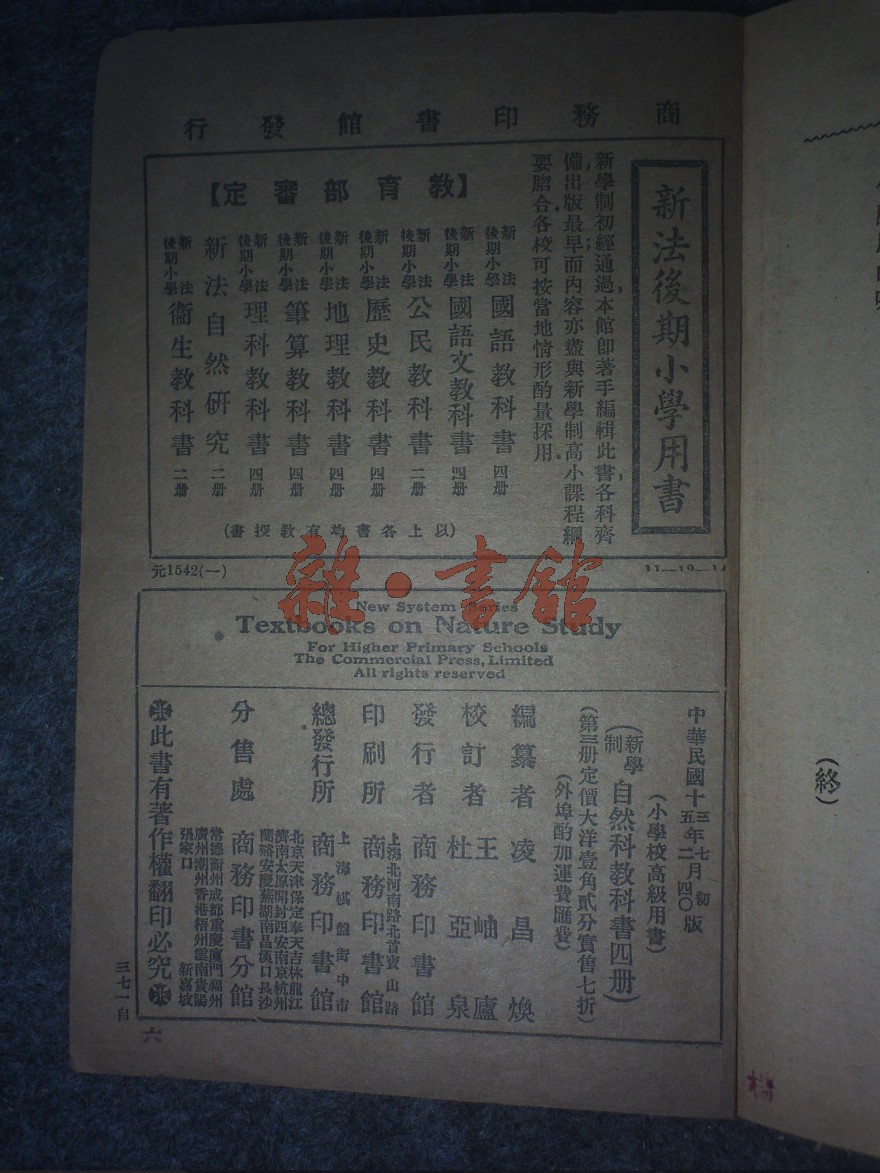 商務印書館發行
新法後期小學用書
新學制初經通過,本館卽著手編輯此書,各科齊
備,出版最早;而內容亦盡與新學制高小課程綱
要脗合.各校可按當地情形酌量採用.
【教育部審定】
新法後期小學 國語教科書 四册
新法後期小學 國語文教科書 四册
新法後期小學 公民教科書 二册
新法後期小學 歷史教科書 四册
新法後期小學 地理教科書 四册
新法後期小學 筆算教科書 四册
新法後期小學 理科教科書 四册
新法自然研究 二册
新法後期小學 衞生教科書 二册
(以上各書均有教授書)
元1542(一)
雜·書館
New System Series
Textbooks on Nature Study
For Higher Primary Schools
The Commercial Press, Limited
All rights reserved
中華民國十三年七月初版
中華民國十五年二月四〇版
(小學校高級用書)
(新學制自然科教科書四册)
(第三册定價大洋壹角貳分實售七折)
(外埠酌加運費匯費)
編纂者 凌昌煥
校訂者 王岫廬 杜亞泉
發行者 商務印書館
印刷所 上海北河南路北首寶山路 商務印書館
總發行所 上海棋盤街中市 商務印書館
分售處 商務印書分館
北京天津保定奉天吉林龍江
濟南太原開封西安南京杭州
蘭谿安慶蕪湖南昌漢口長沙
常德衡州成都重慶廈門福州
廣州潮州香港梧州雲南貴陽
張家口 新嘉坡
此書有著作權翻印必究
三七一自
六
(終)